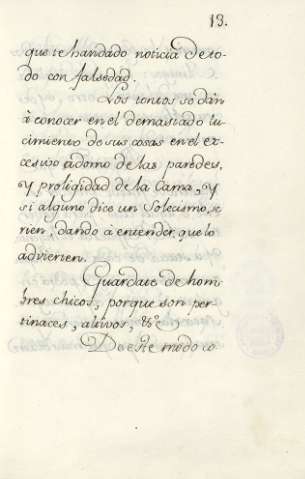 13.
que te han dado noticia de to-
do con falsedad.
Los tontos se dàn
à conocer en el demasiado lu-
cimiento de sus cosas en el ex-
cesivo adorno de las paredes,
y proligidad de la Cama, y
si alguno dice un Solecismo, se
rien, dando à entender, que lo
advierten.
Guardate de hom-
bres chicos, porque son per-
tinaces, altivos, &c.
De este modo co